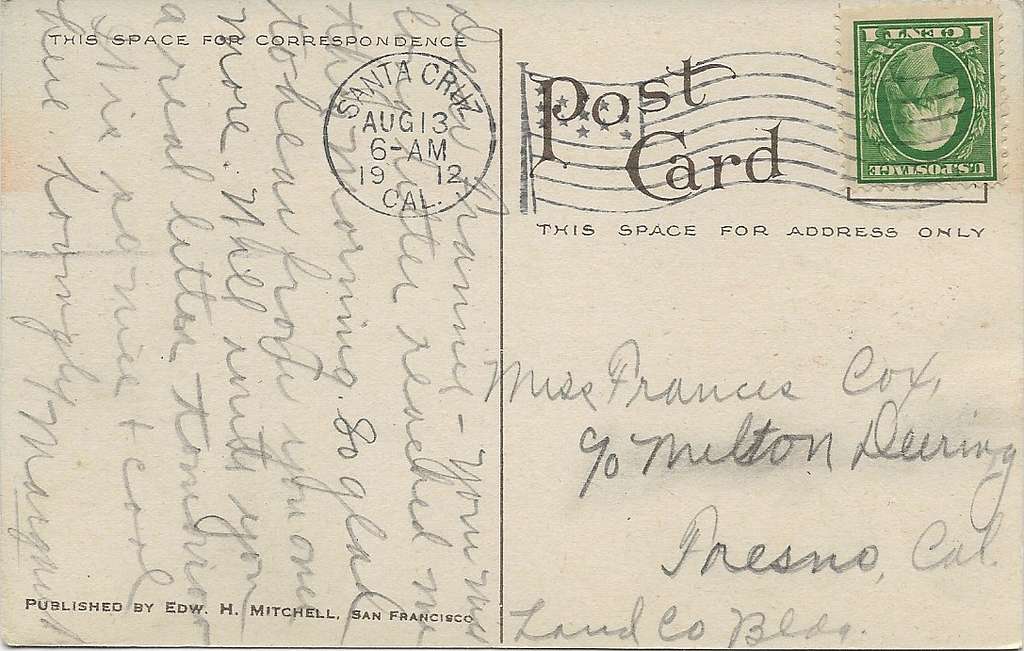 THIS SPACE FOR CORRESPONDENCE
Dear Frannie - Your nice
long letter reached me
this morning. So glad
to hear from you once
more. Will write you
a real letter tomorrow
It is so nice + cool
here. Lovingly Margaret
PUBLISHED BY EDW. H. MITCHELL, SAN FRANCISCO
SANTA CRUZ
AUG 13
6-AM
19 12
CAL.
Post
Card
1 CENT 1
U.S. POSTAGE
THIS SPACE FOR ADDRESS ONLY
Miss Frances Cox,
c/o Milton Deering
Fresno, Cal.
Land Co Bldg.